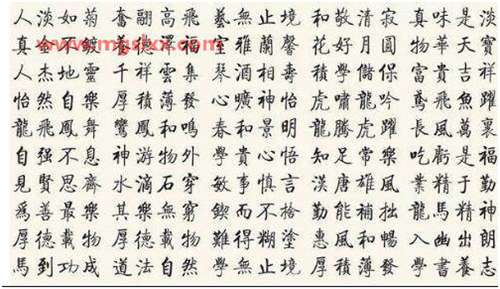 人淡如菊 奮翩高飛 藝無止境 和敬清寂 真味是淡
www.mgslxx.com
真不 養德澤福 室雅蘭馨 花好月圓 物華天寶
人杰地靈 千祥雲集 琴酒相壽 學儲保 富貴吉祥
怡然自樂 厚積薄發 心曠神怡 虎嘯龍吟 鳶飛魚躍
龍飛鳳舞 鸞鳳和鳴 春和景明 龍騰虎躍 長風萬裏
自强不息 神游物外 學貴心悟 知足常樂 吃虧是福
見賢思齊 水滴石穿 敏事慎言 漢唐雄風 業精于勤
爲善最樂 其樂無窮 鍥而不捨 勤能補拙 龍馬精神
厚德載物 厚德載物 難得糊塗 惠風和暢 入幽出朗
馬到功成 道法自然 學無止境 厚積薄發 學書養志